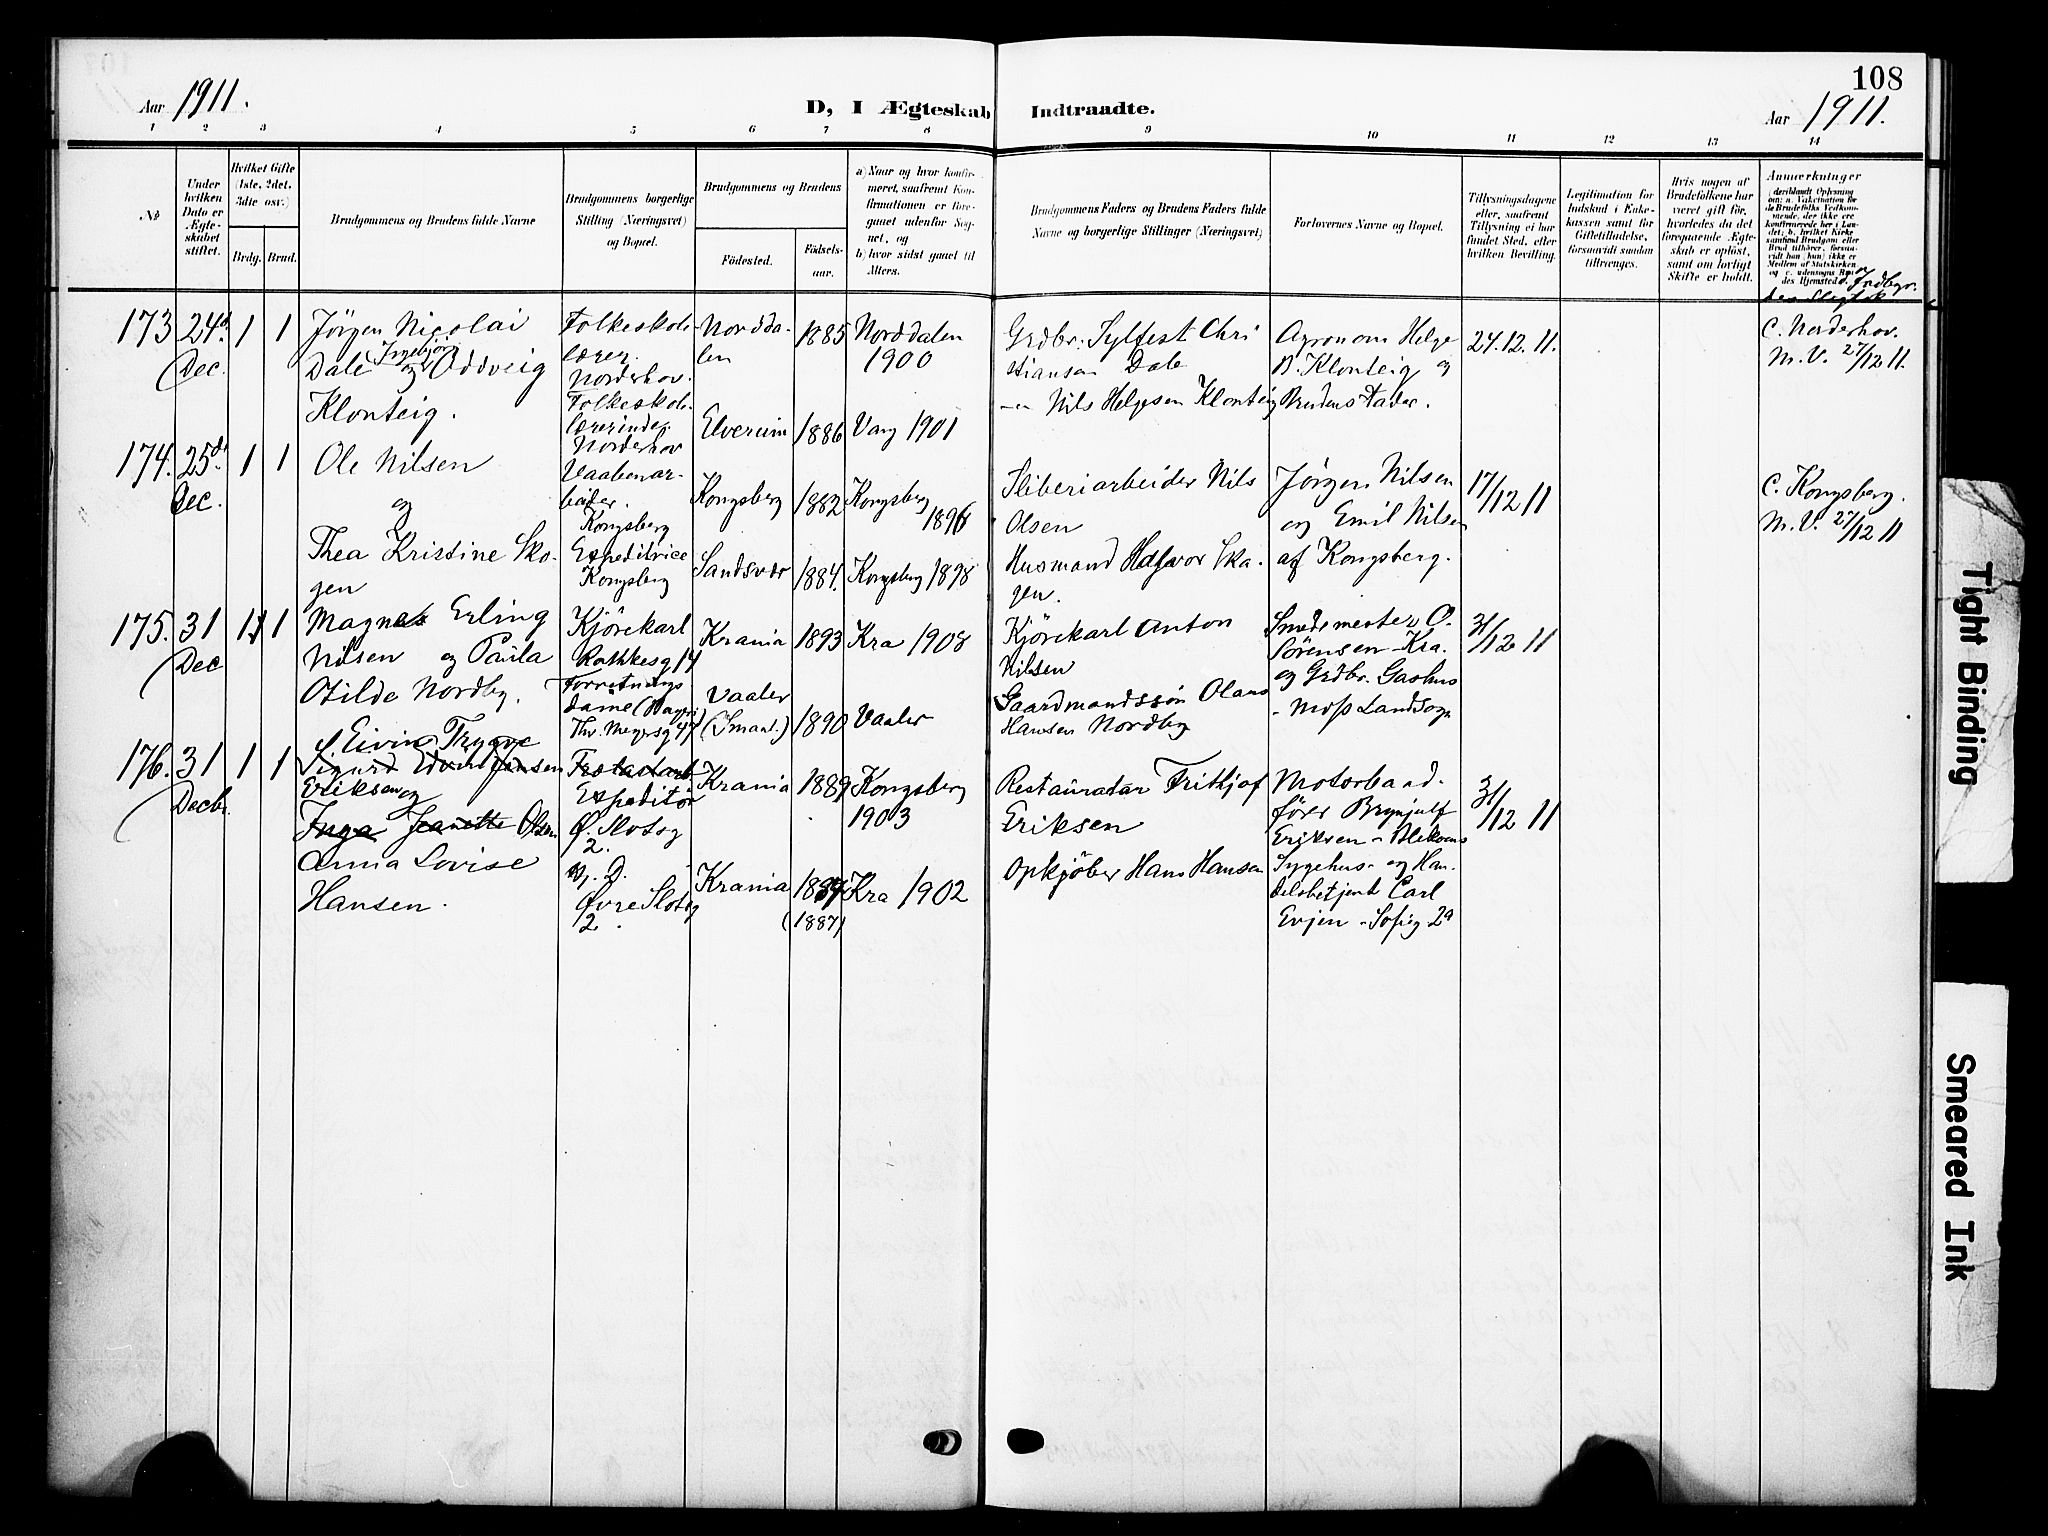 108
Aar 1911.
D, I Ægteskab Indtraadte.
Aar 1911.
1 2 3 4 5 6 7 8 9 10 11 12 13 14
№
Under hvilken Dato er Ægteskabet stiftet.
Hvilket Gifte (1ste, 2det, 3die osv.)
Brdg. Brud.
Brudgommens og Brudens fulde Navne
Brudgommens borgerlige Stilling (Næringsvei) og Bopæl.
Brudgommens og Brudens
Födested.
Födselsaar.
a) Naar og hvor konfirmeret, saafremt Konfirmationen er foregaaet udenför Sognet, og
b) hvor sidst gaaet til Alters.
Brudgommens Faders og Brudens Faders fulde Navne og borgerlige Stillinger (Næringsvei)
Forlovernes Navne og Bopæl.
Tillysningsdagene eller, saafremt Tillysning ei har fundet Sted, efter hvilken Bevilling.
Legitimation for Indskud i Enkekassen samt for Giftetilladelse, forsaavidt saadan tiltrænges.
Hvis nogen af Brudefolkene har været gift för, hvorledes da det foregaaende Ægteskab er oplöst, samt om lovligt Skifte er holdt.
Anmærkninger
173 24d Dec. 1 1
Jörgen Nicolai
Dale og Ingebjör Oddveig
Klonteig.
Folkeskolelærer.
Norderhov.
Folkeskolelærerinde.
Norderhov
Norddalen 1885 Norddalen 1900
Elverum 1886 Vang 1901
Grdbr. Sylfest Christiansen Dale
Nils Helgesen Klonteig
Agronom Helge
B. Klonteig og
Brudens Fader.
24.12.11.
C. Norderhov.
M.V. 27/12 11.
174. 25d. Dec. 1 1
Ole Nilsen
og
Thea Kristine Skogen
Vaabenarbeider.
Kongsberg
Expeditrice
Kongsberg
Kongsberg 1882 Kongsberg 1896
Sandsvær 1884. Kongsberg 1898
Sliberiarbeider Nils
Olsen
Husmand Halvor Skagen.
Jörgen Nilsen
og Emil Nilsen
af Kongsberg.
17/12 11
C. Kongsberg.
M.V. 27/12 11
175. 31 Dec 1 1
Magnus Erling
Nilsen og Paula
Otilde Nordby.
Kjörekarl
Rathkesg 14
Forretnings
dame
Thv. Meyersg 47
Krania 1893 Kra 1908
Vaaler (Smaal.) 1890 Vaaler
Kjörekarl Anton
Nilsen
Gaardmandssön Olaus
Hansen Nordby
Smedemester O.
Sörensen - Kra.
og Grdbr. Gashus
- Moss Landsogn
31/12 11
176. 31 Decbr 1 1
S. Eivind Trygve
Sigurd Edvin Jensen
Eriksen og
Inga Jeanette Olsen
Anna Lovise
Hansen.
Expeditör
Ø. Slotsg
2.
Øvre Slotsg
2.
Krania 1889 Kongsberg 1903
Krania 1887 Kra 1902
(1887)
Restauratør Frithjof
Eriksen
Opkjöber Hans Hansen
Motorbaadförer Brynjulf
Eriksen - Blekoens
Sygehus - og Handelsbetjent Carl
Evjen - Sofieg 2a
31/12 11
Tight Binding
Smeared Ink